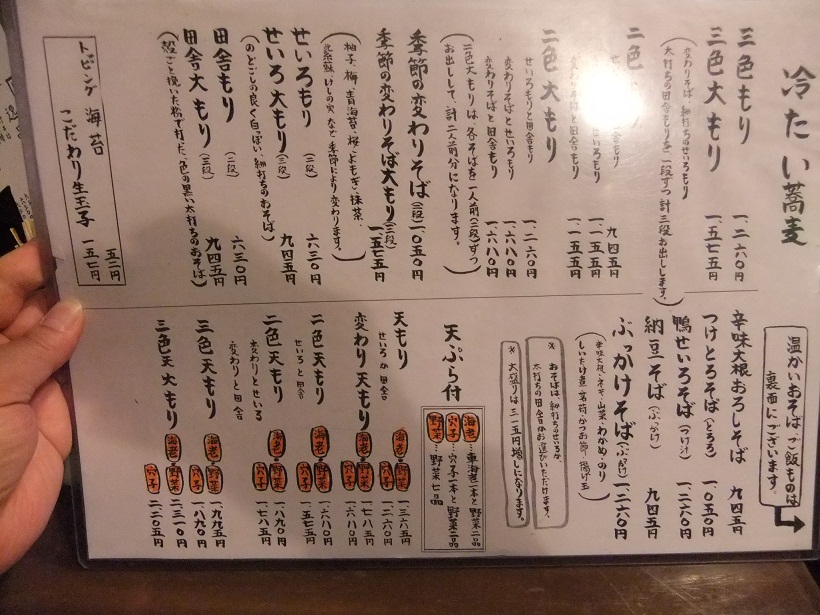 冷たい蕎麦
三色もり 一、二六〇円
三色大もり 一、五七五円
(変わりそば 細打ちのせいろもり
太打ちの田舎もりを一段ずつ計三段お出しします。)
二色
田舎もり 九四五円
せいろもり 一、一五五円
変わりそばと田舎もり 一、一五五円
二色大もり
せいろもりと田舎もり 一、二六〇円
変わりそばとせいろもり 一、六八〇円
変わりそばと田舎もり 一、六八〇円
(二色大もりは各そばを一人前(二段)ずつ
お出しして、計二人前分になります。)
季節の変わりそば(二段) 一、〇五〇円
季節の変わりそば大もり(三段) 一、五七五円
(柚子、梅、青海苔、桜、よもぎ、抹茶、
紫蘇、けしの実など季節により変わります。)
せいろもり(二段) 六三〇円
せいろ大もり(三段) 九四五円
(のどごしの良く白っぽい細打ちのおそば)
田舎もり(二段) 六三〇円
田舎大もり(三段) 九四五円
(殻ごと挽いた粉で打だ、色の黒い太打ちのおそば)
トッピング 海苔 五二円
こだわり生玉子 一五七円
温かいおそば、ご飯ものは
裏面にございます。
辛味大根おろしそば 九四五円
つけとろそば(とろろ) 一、〇五〇円
鴨せいろそば(つけ汁) 一、二六〇円
納豆そば(ぶっかけ) 九四五円
ぶっかけそば(ぶっかけ) 一、二六〇円
(辛味大根・ネギ・山菜・わかめ・のり
しいたけ煮・茗荷・かつお節・揚げ玉)
※おそばは、細打ちのせいろか、
太打ちの田舎かお選びいただけます。
※大盛りは三一五円増しになります。
天ぷら付
海老…車海老二本と野菜二品
穴子…穴子一本と野菜二品
野菜…野菜七品
天もり 海老 一、三六五円
せいろか田舎 穴子 野菜 一、二六〇円
変わり天もり 海老 一、七八五円
穴子 野菜 一、六八〇円
二色天もり 海老 一、六八〇円
せいろと田舎 穴子 野菜 一、五七五円
二色天もり 海老 一、八九〇円
変わりとせいろ 穴子 野菜 一、七八五円
変わりと田舎
三色天もり 海老 一、九九五円
穴子 野菜 一、八九〇円
三色天大もり 海老 二、三一〇円
穴子 野菜 二、二〇五円